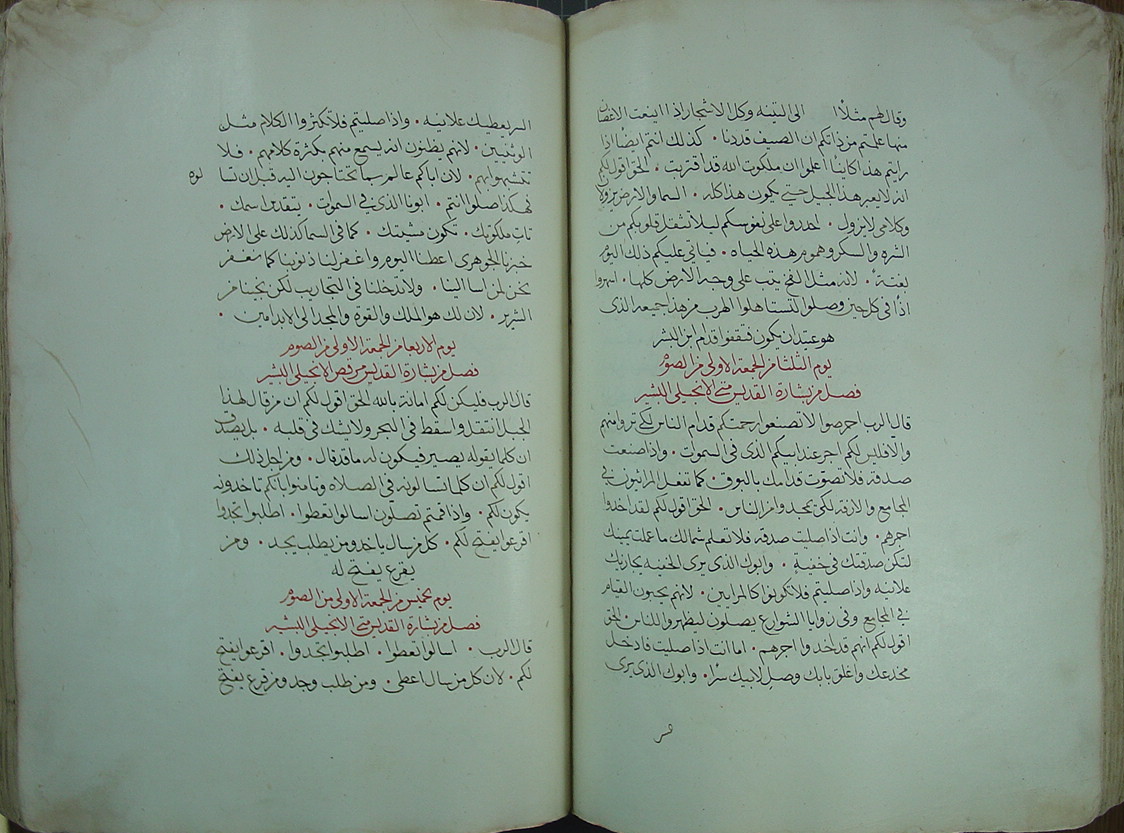 وقال لهم مثلاً الى التينه وكل الاشجار اذا اينعت الاغصان
منها علمتم من ذاتكم ان الصيف قد دنا ٠ كذلك انتم ايضًا اذا
رايتم هذا كاينًا اعلموا ان ملكوت الله قد اقتربت ٠ الحق اقول لكم
انه لا يعبر هذا الجيل حتي يكون هذا كله ٠ السما والارض يزولان
وكلامي لا يزول ٠ احدروا على نفوسكم ليلا تثقل قلوبكم من
الشره والسكر وهموم هذه الحياه ٠ فياتي عليكم ذلك اليوم
بغتةً ٠ لانه مثل الفخ يثب على وجه الارض كلها ٠ اسهروا
اذًا في كل حين وصلوا لتستاهلوا الهرب من هذ جميعه الذى
هو عتيد ان يكون وتقفوا قدام ابن البشر
يوم الثلثا من الجمعة الاولى من الصوم
فصل من بشارة القديس متى الانجيلى البشير
قال الرب احرصوا لا تصنعوا رحمتكم قدام الناس لكي تروامنهم
والا فليس لكم اجر عند ابيكم الذى فى السموت ٠ واذا صنعت
صدقه فلا تصوت قدامك بالبوق كما تفعل المرائيون في
المجامع والازقه لكى يمجدوا من الناس ٠ الحق اقول لكم لقد اخدوا
اجرهم ٠ وانت اذا صليت صدقه فلا تعلم شمالك ما عملت يمينك
لتكن صدقتك في خفية ٠ وابوك الذي يرى الخفيه يجازيك
علانيه واذا صليتم فلا تكونوا كالمرايين ٠ لانهم يحبون القيام
في المجامع وفى زوايا الشوارع يصلون ليظهروا للناس ٠ الحق
اقول لكم انهم قد اخدوا اجرهم ٠ اما انت اذا صليت فادخل
مخدعك واغلق بابك وصل لابيك سرًا ٠ وابوك الذى يرى
السر يعطيك علانيه ٠ واذا صليتم فلا تكثروا الكلام مثل
الوثنيين ٠ لانهم يظنون انه يسمع منهم بكثرة كلامهم ٠ فلا
تتشبهوا بهم ٠ لان اباكم عالم بما تحتاجون اليه قبل ان تسا
لوه
فهكذا صلوا انتم ٠ ابونا الذى في السموت ٠ يتقدس اسمك ٠
تات ملكوتك ٠ تكون مشيتك ٠ كما فى السما كذلك على الارض
خبزنا الجوهرى اعطنا اليوم واغفر لنا ذنوبنا كما نغفر
نحن لمن اسا الينا ٠ ولا تدخلنا فى التجاريب لكن نجينا من
الشرير ٠ لان لك هو الملك والقوة والمجد الى الابد امين ٠
يوم الاربعا من الجمعة الاولى من الصوم
فصل من بشارة القديس مرقص الانجيلى البشير
قال الرب فليكن لكم امانة بالله الحق اقول لكم ان من قال لهذا
الجبل انتقل واسقط فى البحر ولا يشك فى قلبه ٠ بل يصدق
ان كلما يقوله يصير فيكون له ما قد قال ٠ ومن اجل ذلك
اقول لكم ان كلما تسالونه فى الصلاه وتامنوا بانكم تاخدونه
يكون لكم ٠ واذا قمتم تصلون اسالوا تعطوا ٠ اطلبوا تجدوا
اقرعوا يفتح لكم ٠ كل من يسال ياخد ومن يطلب يجد ٠ ومن
يقرع يفتح له
يوم خميس من الجمعة الاولى من الصوم
فصل من بشارة القديس متى الانجيلى البشير
قال الرب ٠ اسالوا تعطوا ٠ اطلبوا تجدوا ٠ اقرعوا يفتح
لكم ٠ لان كل من يسال اعطى ٠ ومن طلب وجد ومن قرع يفتح